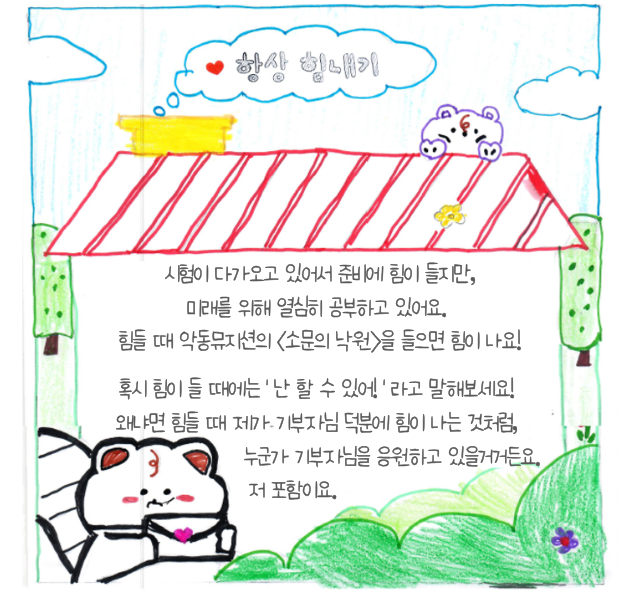 항상 힘내기
시험이 다가오고 있어서 준비에 힘이 들지만,
미래를 위해 열심히 공부하고 있어요.
힘들 때 악동뮤지션의 <소문의 낙원>을 들으면 힘이 나요!
혹시 힘이 들 때에는 ' 난 할 수 있어! ' 라고 말해보세요!
왜냐면 힘들 때 제가 기부자님 덕분에 힘이 나는 것처럼,
누군가 기부자님을 응원하고 있을거거든요.
저 포함이요.